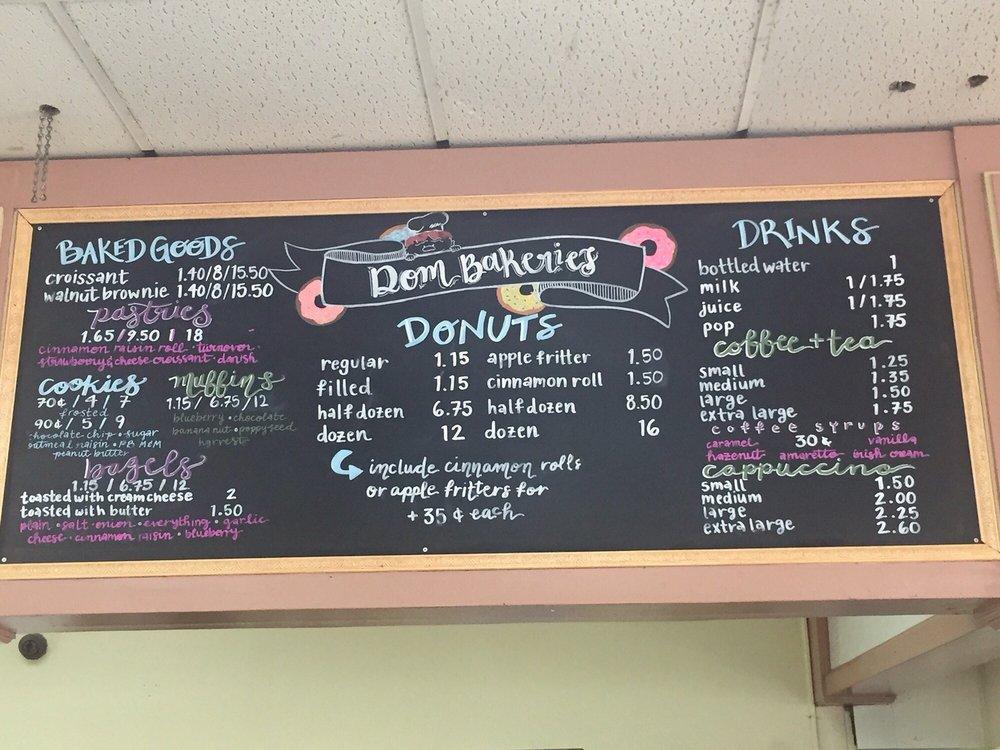 Dom Bakeries
BAKED GOODS
croissant 1.40/8/15.50
walnut brownie 1.40/8/15.50
pastries
1.65/9.50/18
cinnamon raisin roll · turnover
strawberry & cheese croissant · danish
cookies
70¢/4/7
frosted
90¢/5/9
chocolate chip · sugar
oatmeal raisin · PB M&M
peanut butter
muffins
1.15/6.75/12
blueberry · chocolate
banana nut · poppyseed
harvest
bagels
1.15/6.75/12
toasted with cream cheese 2
toasted with butter 1.50
plain · salt · onion · everything · garlic
cheese · cinnamon raisin · blueberry
DONUTS
regular 1.15
filled 1.15
half dozen 6.75
dozen 12
apple fritter 1.50
cinnamon roll 1.50
half dozen 8.50
dozen 16
include cinnamon rolls
or apple fritters for
+35 ¢ each
DRINKS
bottled water 1
milk 1/1.75
juice 1/1.75
pop 1.75
coffee + tea
small 1.25
medium 1.35
large 1.50
extra large 1.75
coffee syrups
caramel 30¢ vanilla
hazenut amaretto irish cream
cappuccino
small 1.50
medium 2.00
large 2.25
extra large 2.60